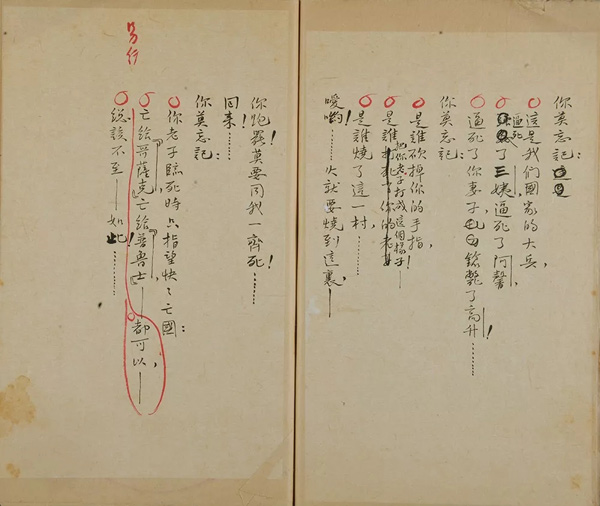 你莫忘記:
這是我們國家的大兵,
逼死了三姨,逼死了阿馨,
逼死了你妻子,鎗斃了高升!………
你莫忘記:
是誰砍掉你的手指,
是誰把你老子打成這個樣子!——
是誰燒了這一村,………
噯喲!………火就要燒到這裏,——
你跑罷!莫要同我一齊死!………
回来!………
你莫忘記:
你老子臨死時只指望快〻亡國:
亡給『哥薩克』,亡給『普魯士』——都可以,——
總該不至——如此!………
另行